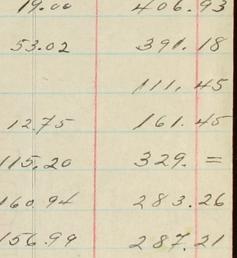 19.00 406.93
53.02 391.18
111.45
12.75 161.45
115.20 329. =
160.94 283.26
156.99 287.21